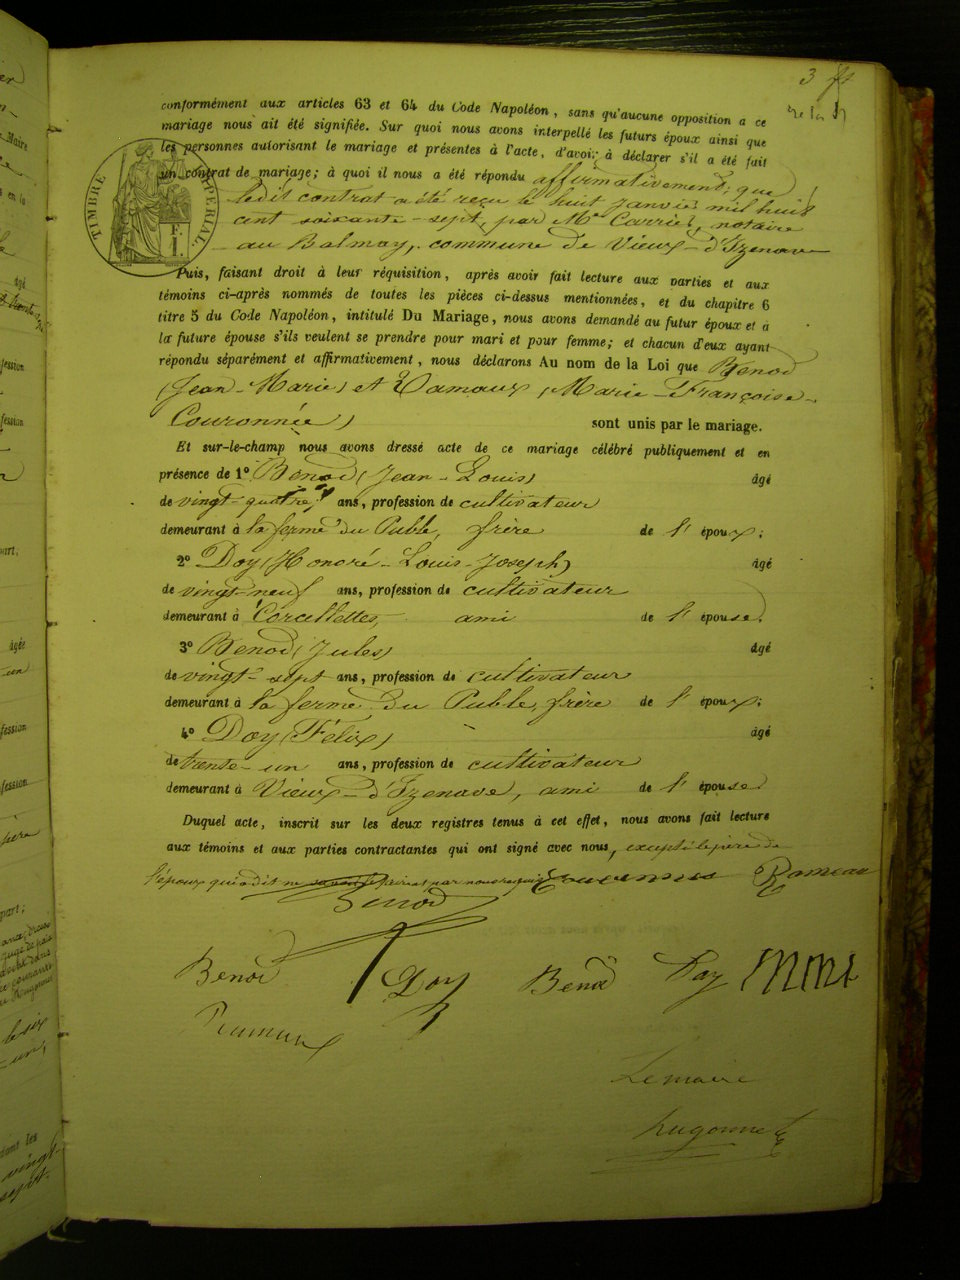 3
conformément aux articles 63 et 64 du Code Napoléon, sans qu'aucune opposition a ce
mariage nous ait été signifiée. Sur quoi nous avons interpellé les futurs époux ainsi que
les personnes autorisant le mariage et présentes à l'acte, d'avoir à déclarer s'il a été fait
un contrat de mariage; à quoi il nous a été répondu affirmativement; que
ledit contrat a été reçu le huit Janvier mil huit
cent soixante-sept, par Me Carrier, notaire
au Balmay, commune de Vieux-d'Izenave
TIMBRE IMPÉRIAL
F. 1.
Puis, faisant droit à leur réquisition, après avoir fait lecture aux parties et aux
témoins ci-après nommés de toutes les pièces ci-dessus mentionnées, et du chapitre 6
titre 5 du Code Napoléon, intitulé Du Mariage, nous avons demandé au futur époux et à
la future épouse s'ils veulent se prendre pour mari et pour femme; et chacun d'eux ayant
répondu séparément et affirmativement, nous déclarons Au nom de la Loi que Benod
(Jean-Marie) et Ramaux (Marie-Françoise-
Couronnée) sont unis par le mariage.
Et sur-le-champ nous avons dressé acte de ce mariage célébré publiquement et en
présence de 1º Benod (Jean-Louis) âgé
de vingt-quatre ans, profession de cultivateur
demeurant à la ferme du Puble, frère de l'époux;
2º Doy (Honoré-Louis-Joseph) âgé
de vingt-neuf ans, profession de cultivateur
demeurant à Corcellettes, ami de l'épouse;
3º Benod (Jules) âgé
de vingt-sept ans, profession de cultivateur
demeurant à la ferme du Puble, frère de l'époux;
4º Doy (Félix) âgé
de trente-un ans, profession de cultivateur
demeurant à Vieux-d'Izenave, ami de l'épouse
Duquel acte, inscrit sur les deux registres tenus à cet effet, nous avons fait lecture
aux témoins et aux parties contractantes qui ont signé avec nous, excepté le père de
l'époux qui a dit ne savoir le faire
Benod
Benod Doy Benod Doy
Le maire
hugonnet